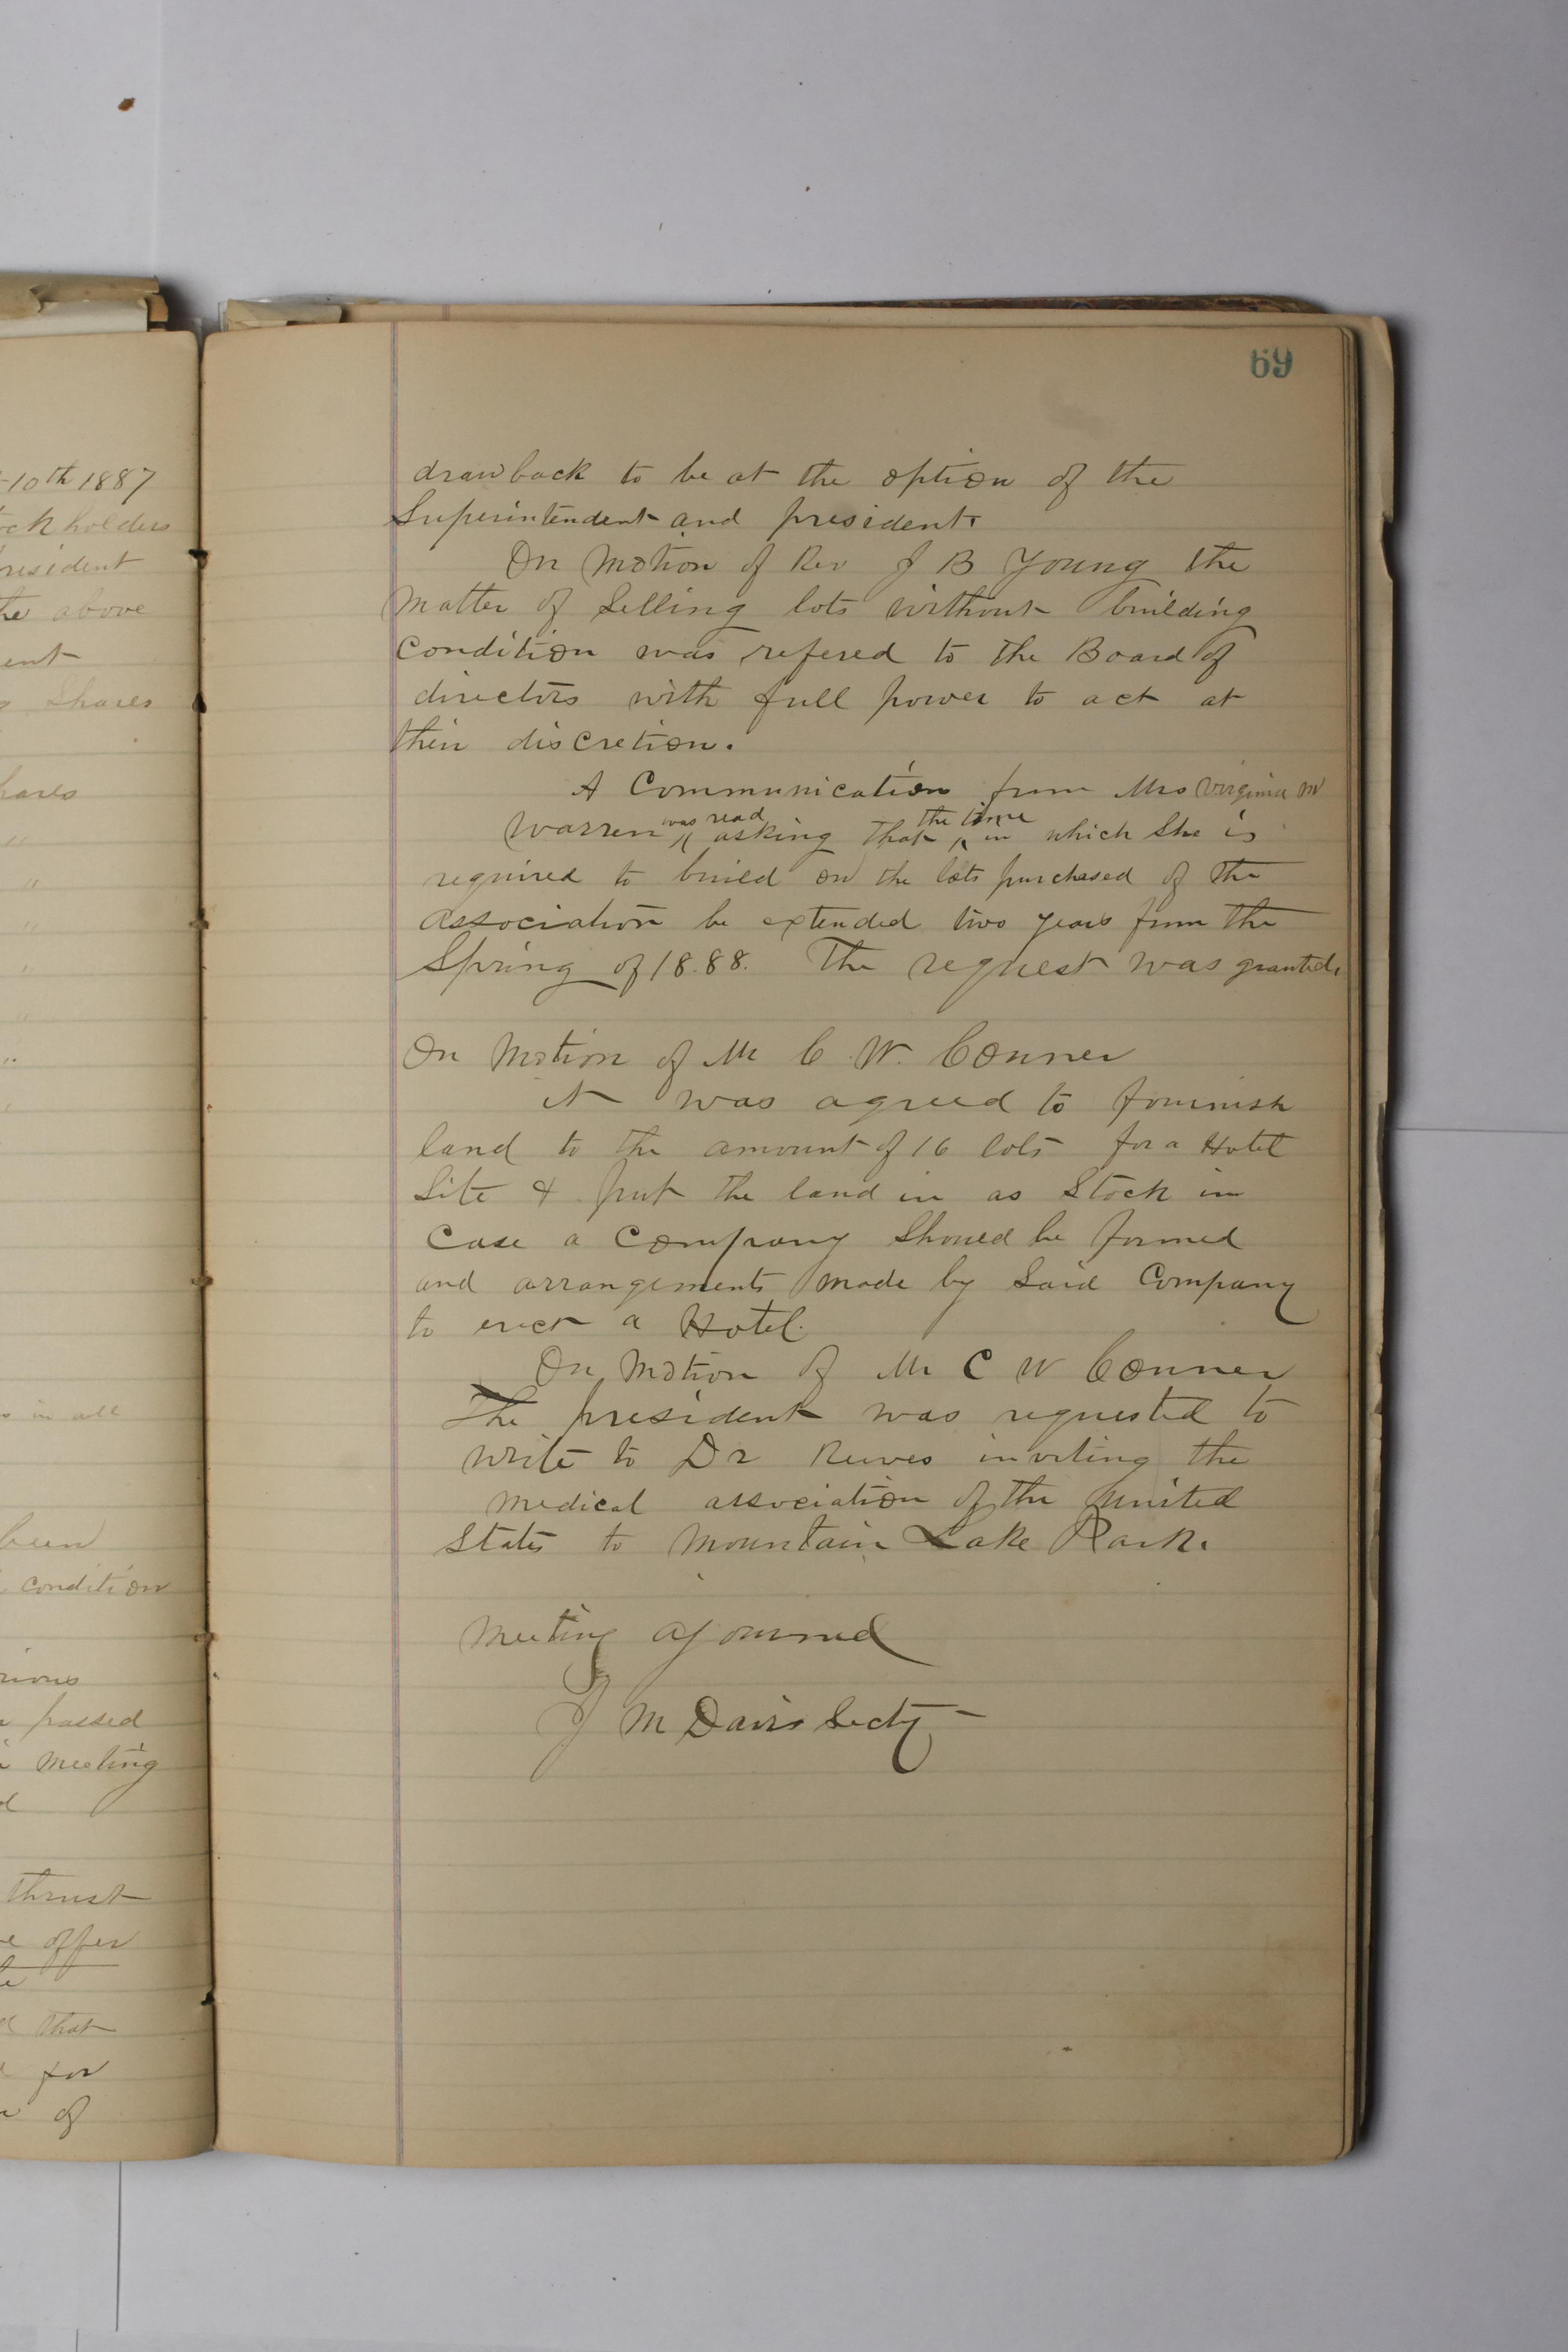 -10th 1887
ckholders
resident
he above
ent
g Shares
hares
"
"
"
"
"
"
s in all
been
condition
rious
passed
meeting
thrust
offer
that
for
of
69
drawback to be at the option of the
Superintendent and president.
On Motion of Rev J B Young the
Matter of Selling lots without building
Condition was refered to the Board of
directors with full power to act at
their discretion.
A Communication from Mrs Virginia M
was read the time
Warren ^ asking that ^ in which She is
required to build on the lots purchased of the
Association be extended two years from the
Spring of 18.88. The request was granted.
On Motion of Mr C. W. Conner
it was agreed to fourinish
land to the amount of 16 lots for a Hotel
Site & put the land in as Stock in
Case a Company Should be formed
and arrangements made by Said Company
to erect a Hotel.
On Motion of Mr C W Conner
The president was requested to
write to Dr Reeves inviting the
medical association of the united
States to Mountain Lake Park.
Meeting ajourned
J M Davis Secty